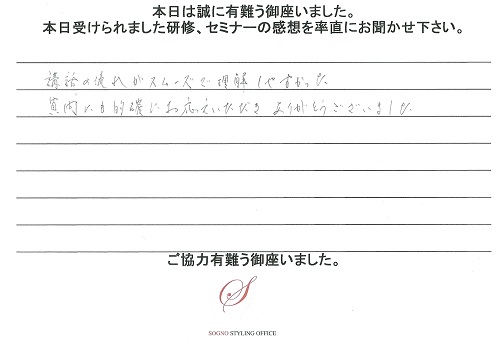 本日は誠に有難う御座いました。
本日受けられました研修、セミナーの感想を率直にお聞かせ下さい。
講話の流れがスムーズで理解しやすかった
質問にも的確にお応えいただきありがとうございました
ご協力有難う御座いました。
S
SOGNO STYLING OFFICE